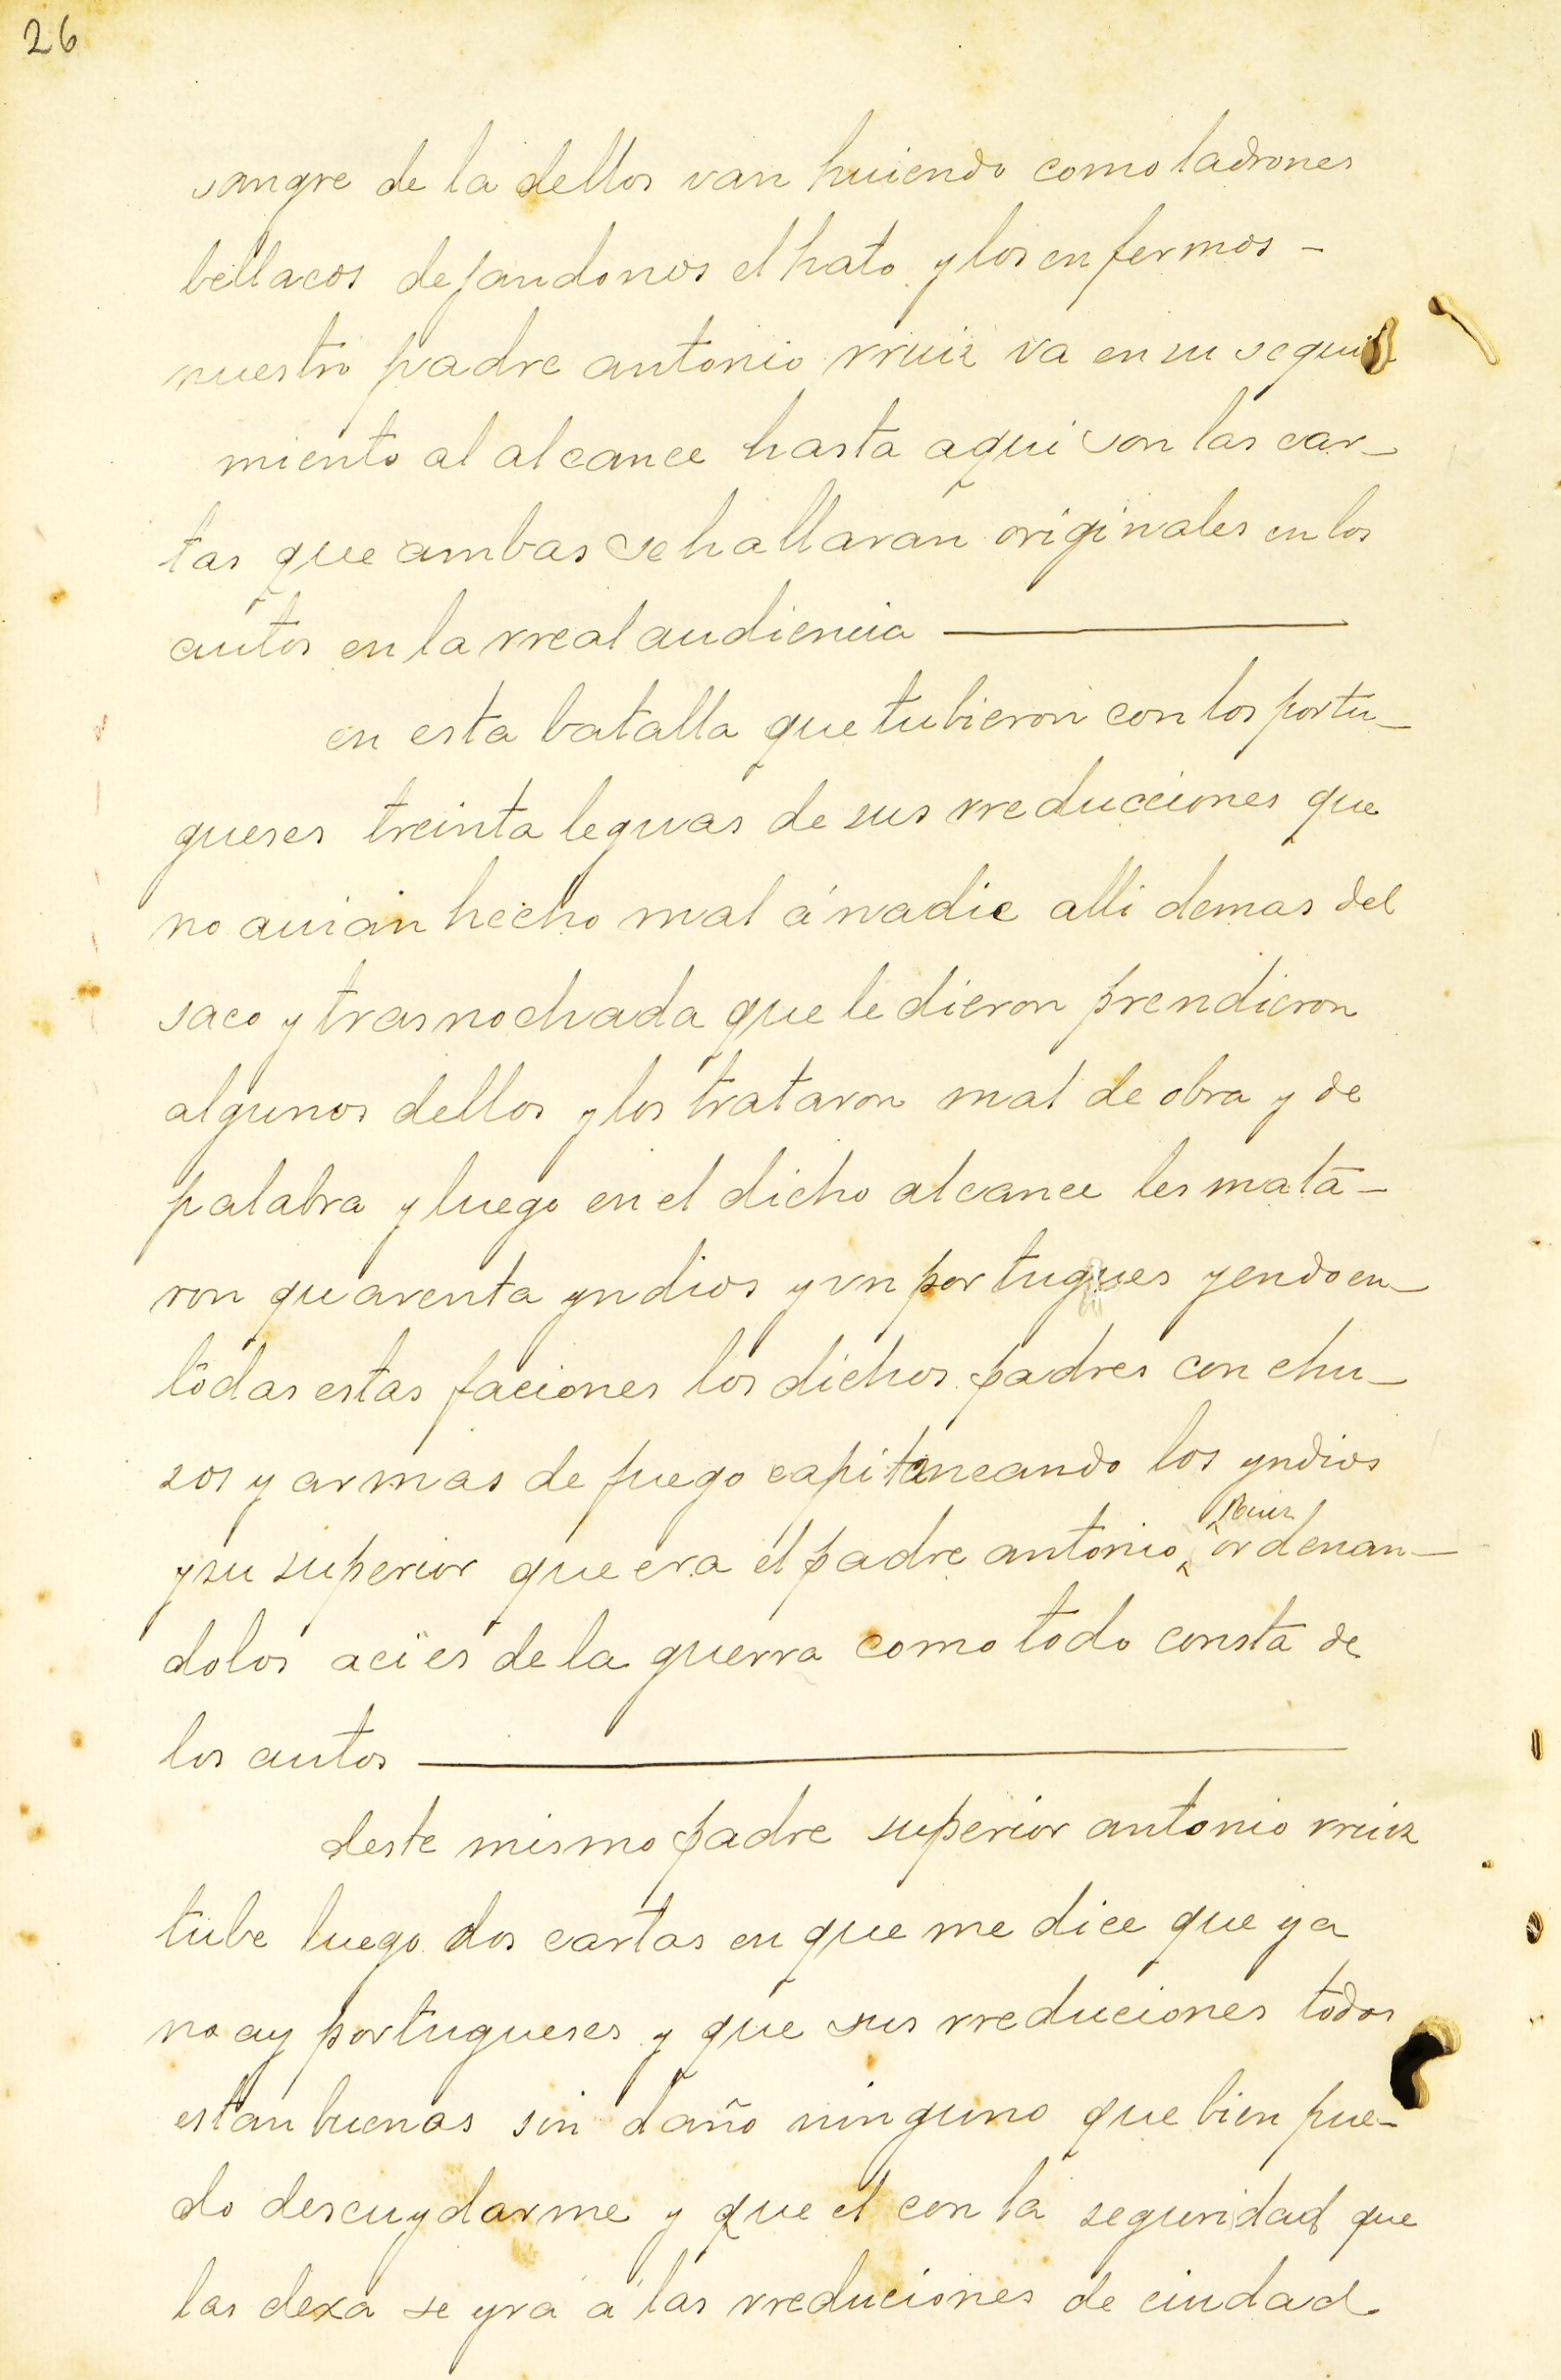 26
sangre de la dellos van huiendo como ladrones
bellacos dejandonos el hato y los enfermos –
nuestro padre antonio rruiz va en su segui
miento al alcance hasta aqui son las car–
tas que ambas se hallaran originales en los
autos en la rreal audiencia ———
en esta batalla que tubieron con los portu–
gueses treinta leguas de sus rreducciones que
no auian hecho mal á nadie alli demas del
saco y trasnochada que le dieron prendieron
algunos dellos y los trataron mal de obra y de
palabra y luego en el dicho alcance les mata–
ron quarenta yndios y vn portugues yendo en–
todas estas faciones los dichos padres con chu–
sos y armas de fuego capitaneando los yndios
y su superior que era el padre antonio Ruiz ordenan–
dolos acies de la guerra como todo consta de
los autos ———
deste mismo padre superior antonio rruiz
tube luego dos cartas en que me dice que ya
no ay portugueses y que sus rreduciones todas
estan buenas sin daño ninguno que bien pue–
do descuydarme y que el con la seguridad que
las dexa se yra a las rreduciones de ciudad